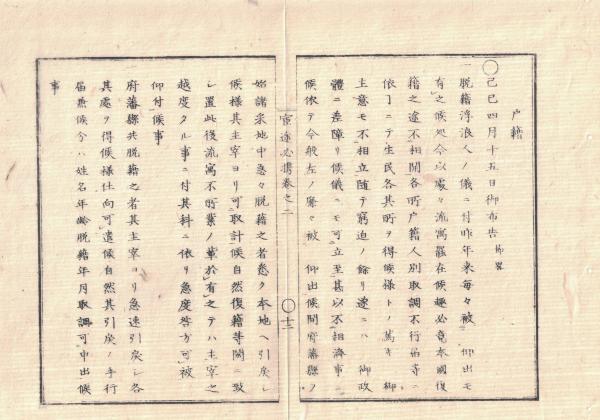 戸籍
〇己巳四月十五日御布告 抄略
一脱籍浮浪人ノ儀ニ付昨年来毎々被 仰出モ
有之候処今以處々流寓罷在候趣必竟本國復
籍之途不相開各所戸籍人別取調不行届等ニ
依リテ生民各其所ヲ得候様トノ篤キ御
主意モ不相立随テ窮迫ノ餘リ遂ニハ 御政
體ニ差障リ候儀ニモ可立至甚以不相濟事ニ
候依テ今般左ノ廉々被 仰出候間府藩縣ノ
宦途必携巻之二 〇十三
始諸采地中悉々脱籍之者悉ク本地ヘ引戻シ
候様其主宰ヨリ可取計候自然復籍等閑ニ致
シ置此後流寓不所業ノ輩於有之テハ主宰之
越度タル事ニ付其科ニ依リ急度咎方可被
仰付候事
府藩縣共脱籍之者其主宰ヨリ急速引戻シ各
其處ヲ得候様仕向可遣候自然其引戻ノ手行
届兼候分ハ姓名年齢脱籍年月取調可申出候
事